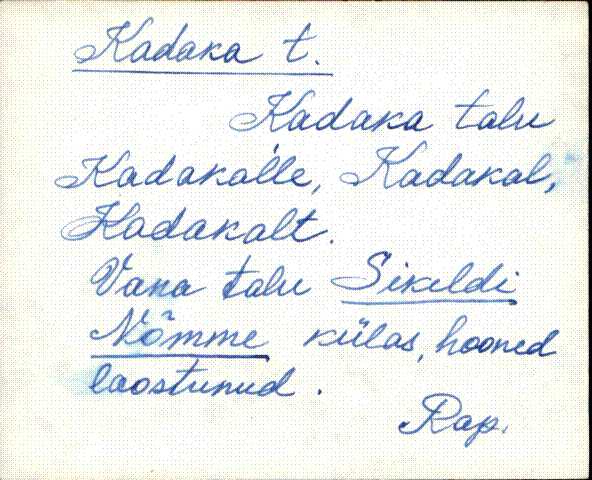 Kadaka t.
Kadaka talu
Kadakalle, Kadakal,
Kadakalt.
Vana talu Sikeldi
Nõmme külas, hooned
laostunud.
Rap.